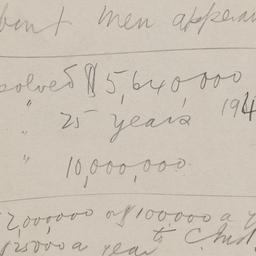 bout men appear
solved $5,640,000
" 25 years 194
" 10,000,000
2,000,000 or $100000 a y
$25000 a year to